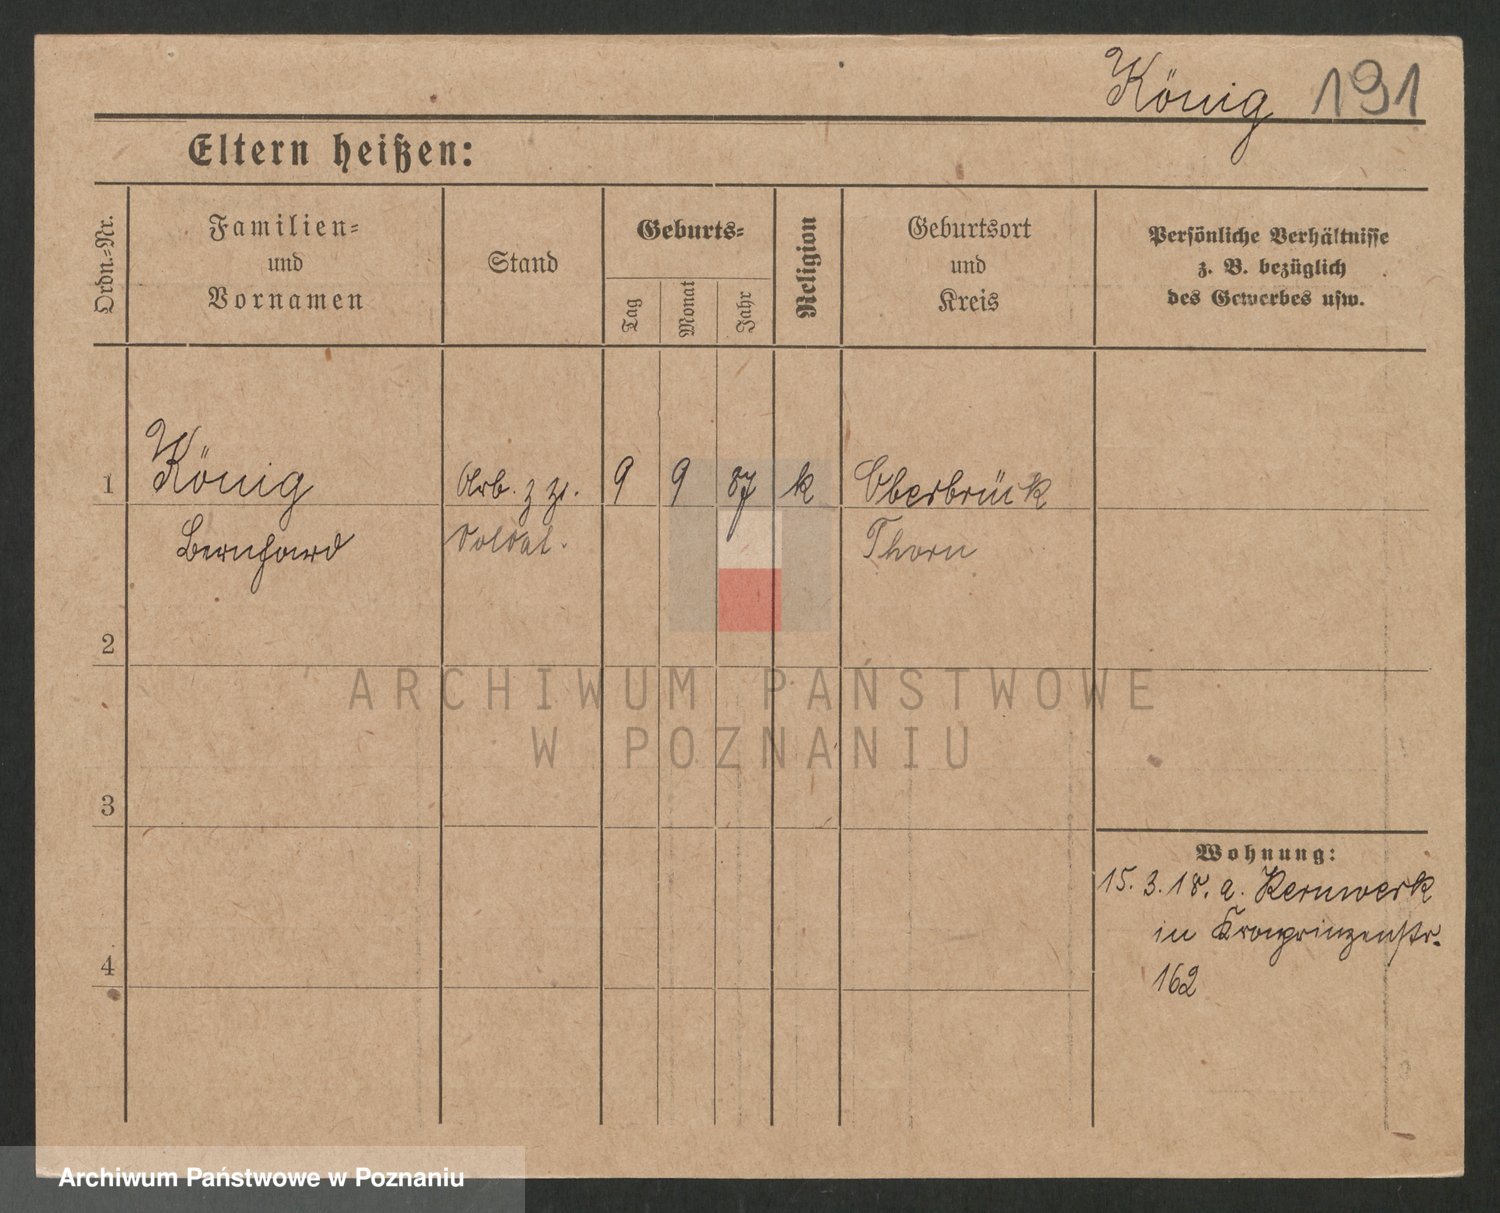 König 191
Eltern heißen:
Ordn.-Nr.
Familien=
und
Vornamen
Stand
Geburts=
Tag
Monat
Jahr
Religion
Geburtsort
und
Kreis
Persönliche Verhältnisse
z. B. bezüglich
des Gewerbes usw.
1 König Arb. z. Zt. 9 9 87 k Oberbrück
Bernhard Soldat. Thorn
2
3
4
Wohnung:
15. 3. 18. a. Kernwerk
in Kronprinzenstr.
162
ARCHIWUM PAŃSTWOWE
W POZNANIU
Archiwum Państwowe w Poznaniu